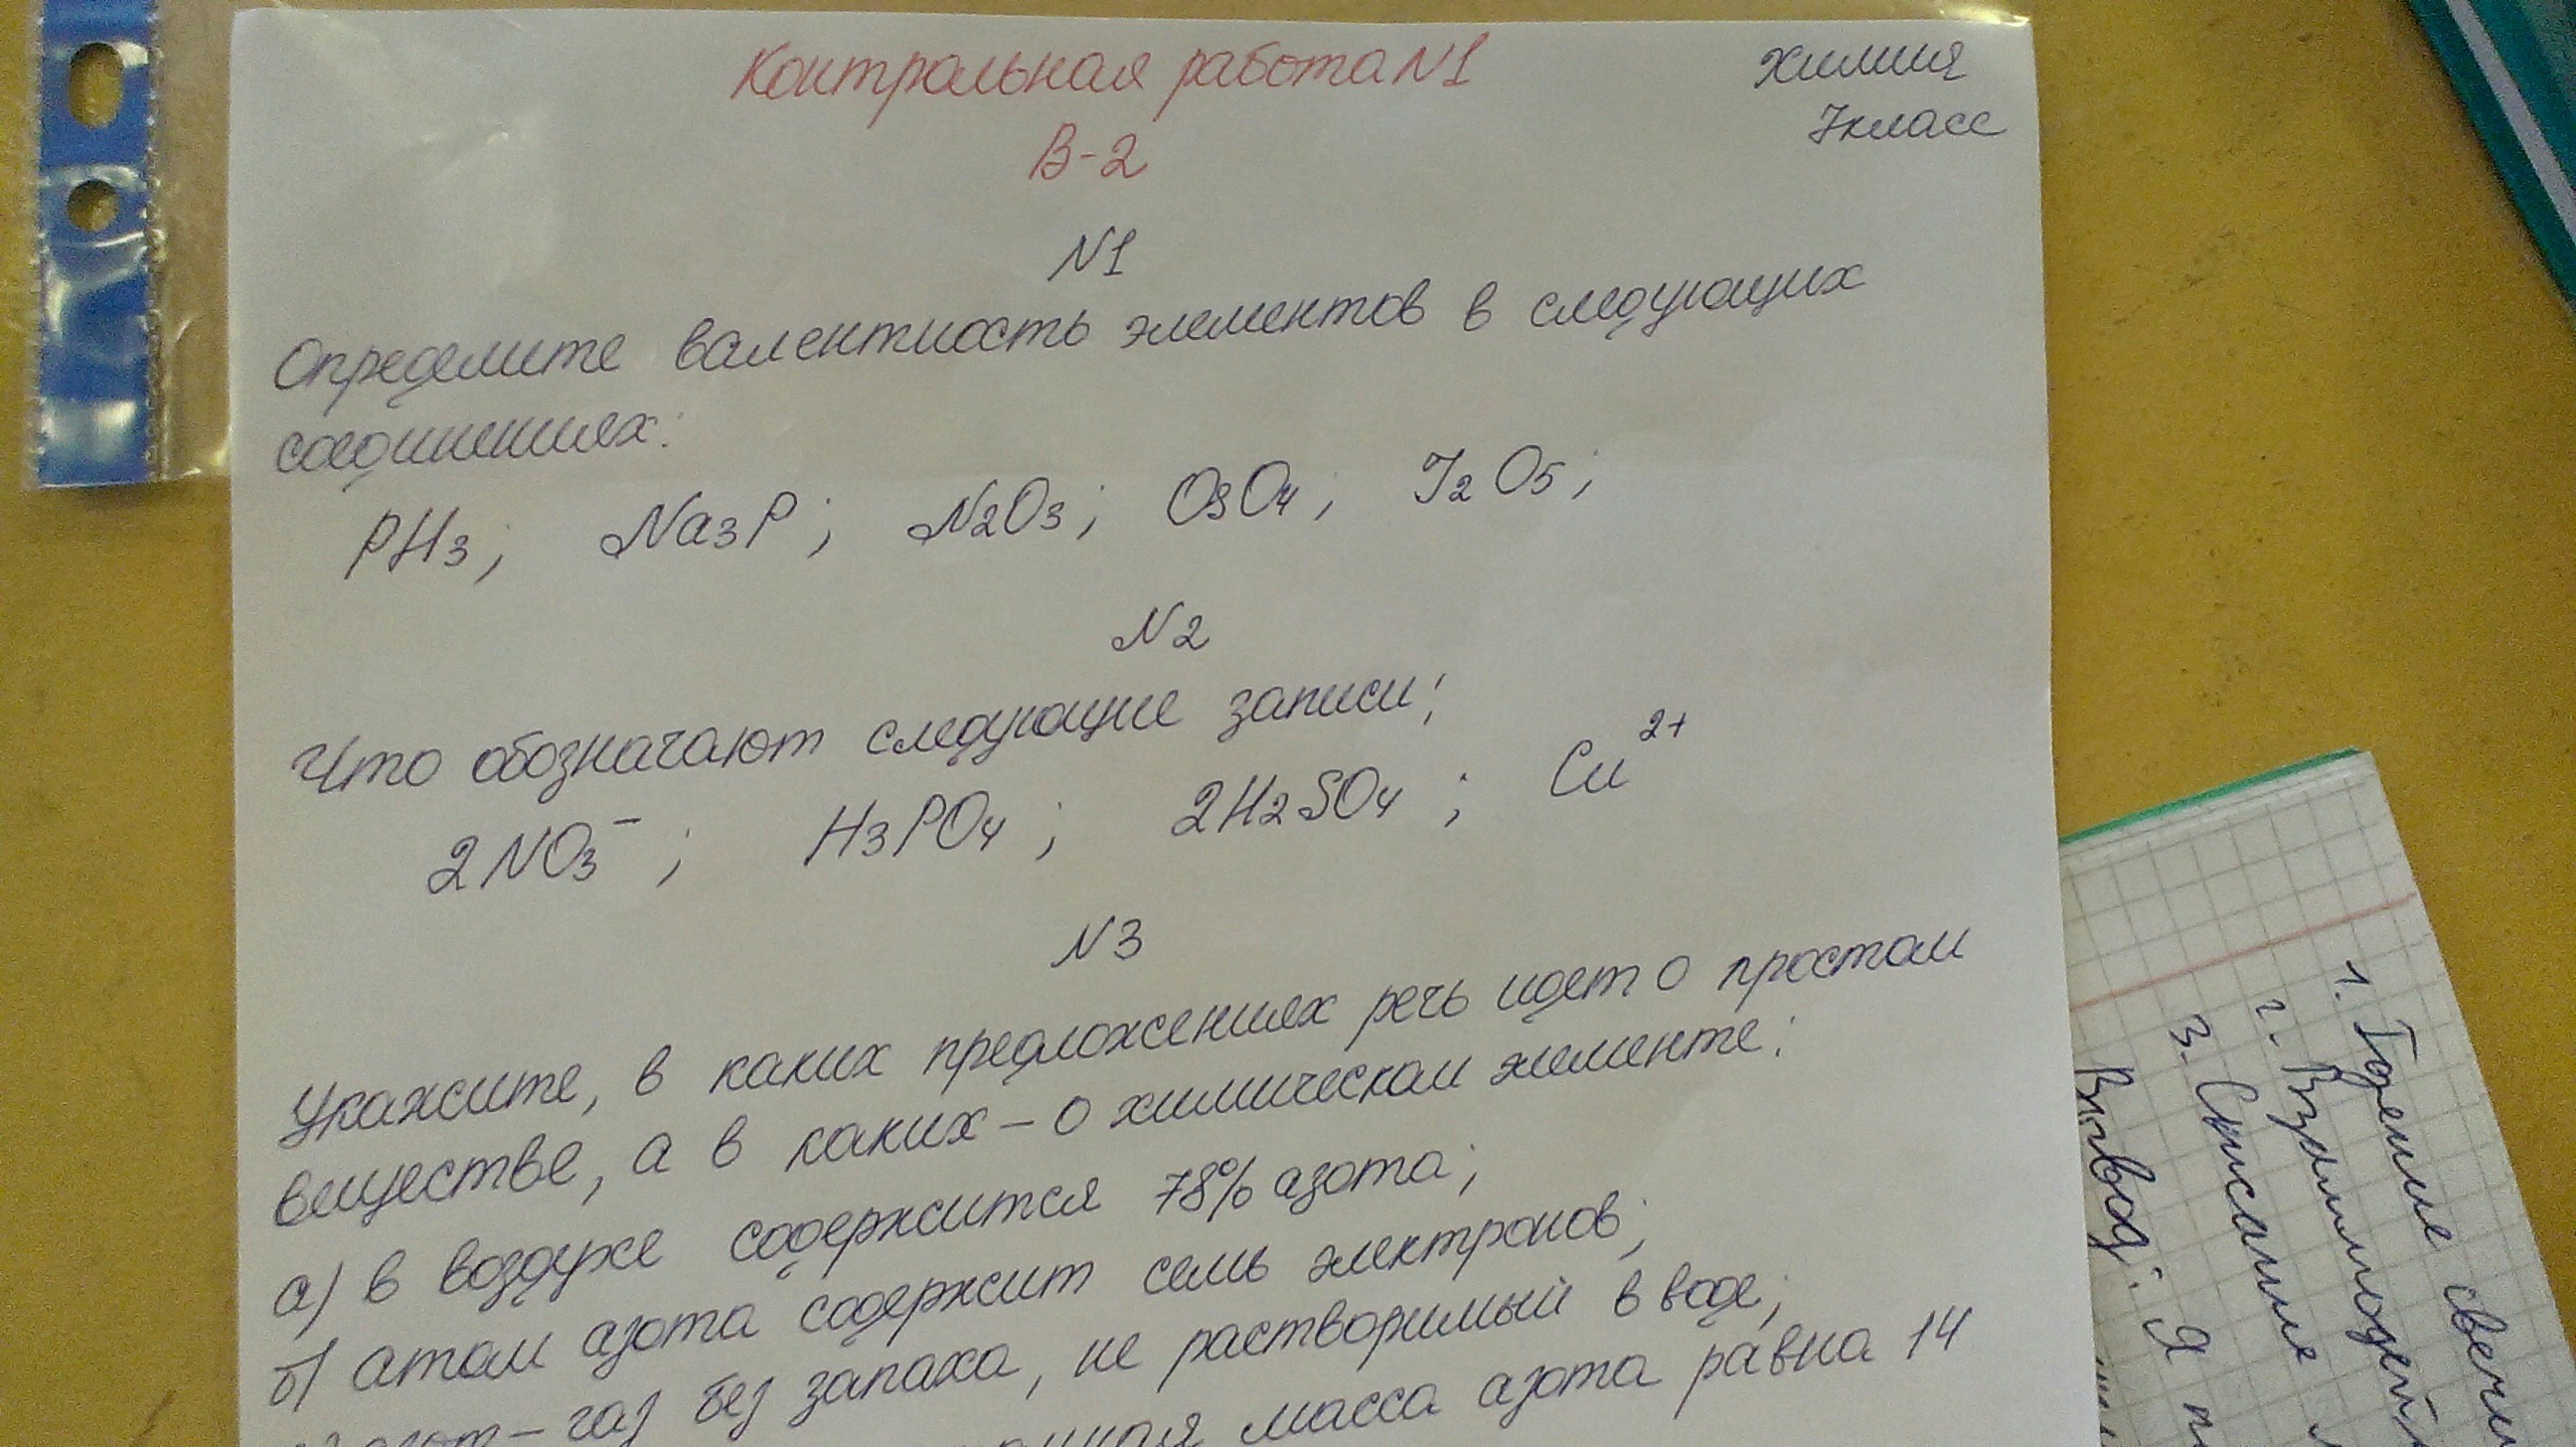 Контрольная работа N1
Химия
7 класс
В-2
N1
Определите валентность элементов в следующих
соединениях:
PH3; Na3P; N2O3; OsO4; I2O5;
N2
Что обозначают следующие записи:
2NO3⁻; H3PO4; 2H2SO4; Cu²⁺
N3
Укажите, в каких предложениях речь идет о простом
веществе, а в каких – о химическом элементе:
а) в воздухе содержится 78% азота;
б) атом азота содержит семь электронов;
азот – газ без запаха, не растворимый в воде;
масса азота равна 14
1. Горение свечи
2.
3. Сжигание
Вывод: Я